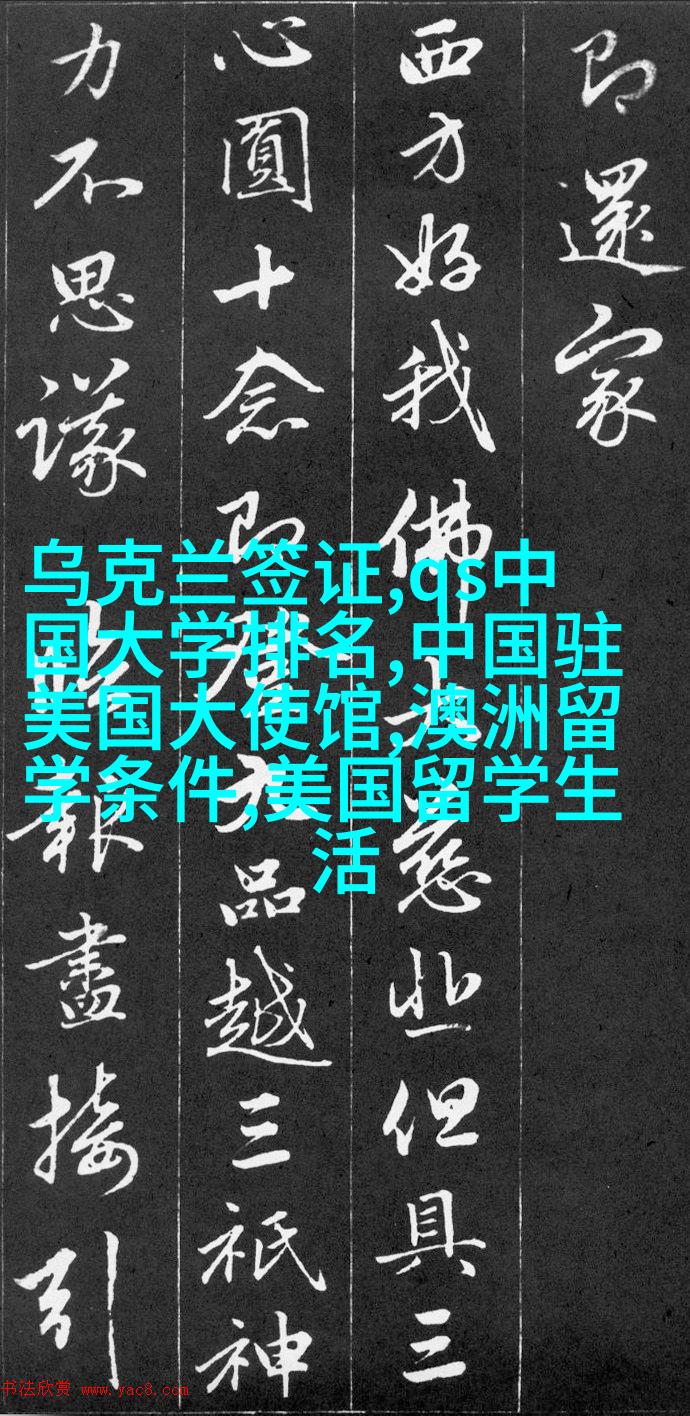 即還家
西方好我佛大慈悲但具三
心圓十念即登九品越三祇神
力不思議報盡接引
乌克兰签证,qs中
国大学排名,中国驻
美国大使馆,澳洲留
学条件,美国留学生
活
书法欣赏 www.yac8.com